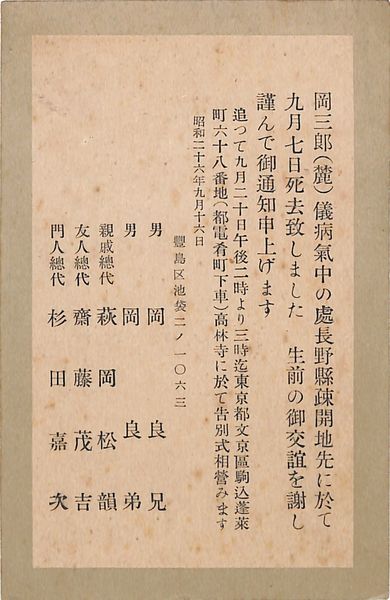 岡三郎(麓)儀病氣中の處長野縣疎開地先に於て
九月七日死去致しました　生前の御交誼を謝し
謹んで御通知申上げます
追つて九月二十日午後二時より三時迄東京都文京區駒込蓬萊
町六十八番地(都電肴町下車)高林寺に於て告別式相營みます
昭和二十六年九月十六日
豐島区池袋二ノ一〇六三
男　岡良兄
男　岡良弟
親戚總代　萩岡松韻
友人總代　齋藤茂吉
門人總代　杉田嘉次